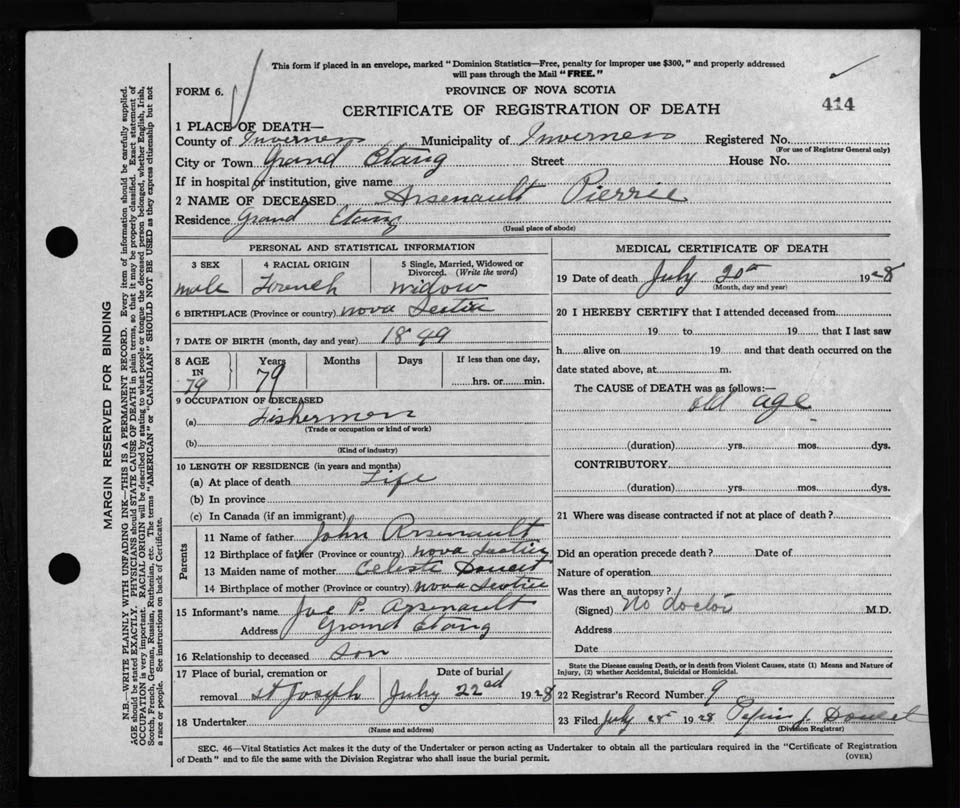 This form if placed in an envelope, marked "Dominion Statistics—Free, penalty for improper use $300," and properly addressed
will pass through the Mail "FREE."
FORM 6.
PROVINCE OF NOVA SCOTIA
CERTIFICATE OF REGISTRATION OF DEATH
414
1 PLACE OF DEATH—
County of Inverness Municipality of Inverness Registered No.
(For use of Registrar General only)
City or Town Grand Etang Street House No.
If in hospital or institution, give name
2 NAME OF DECEASED Arsenault Pierrie
Residence Grand Etang
(Usual place of abode)
PERSONAL AND STATISTICAL INFORMATION
3 SEX 4 RACIAL ORIGIN 5 Single, Married, Widowed or
Divorced. (Write the word)
male French widow
6 BIRTHPLACE (Province or country) nova Scotia
7 DATE OF BIRTH (month, day and year) 1849
8 AGE Years Months Days If less than one day,
IN
79 79 hrs. or min.
9 OCCUPATION OF DECEASED
(a) Fishermen
(Trade or occupation or kind of work)
(b)
(Kind of industry)
10 LENGTH OF RESIDENCE (in years and months)
(a) At place of death Life
(b) In province
(c) In Canada (if an immigrant)
Parents
11 Name of father John Arsenault
12 Birthplace of father (Province or country) nova Scotia
13 Maiden name of mother Celeste Doucet
14 Birthplace of mother (Province or country) nova Scotia
15 Informant's name Joe P. Arsenault
Address Grand Etang
16 Relationship to deceased Son
17 Place of burial, cremation or Date of burial
removal St Joseph July 22nd 1928
18 Undertaker
(Name and address)
MEDICAL CERTIFICATE OF DEATH
19 Date of death July 20th 1928
(Month, day and year)
20 I HEREBY CERTIFY that I attended deceased from
19 to 19 that I last saw
h alive on 19 and that death occurred on the
date stated above, at m.
The CAUSE of DEATH was as follows:—
old age
(duration) yrs. mos. dys.
CONTRIBUTORY
(duration) yrs. mos. dys.
21 Where was disease contracted if not at place of death?
Did an operation precede death? Date of
Nature of operation
Was there an autopsy?
(Signed) No doctor M.D.
Address
Date
State the Disease causing Death, or in death from Violent Causes, state (1) Means and Nature of
Injury, (2) whether Accidental, Suicidal or Homicidal.
22 Registrar's Record Number 9
23 Filed July 28th 1928 J. Doucet
(Division Registrar)
SEC. 46—Vital Statistics Act makes it the duty of the Undertaker or person acting as Undertaker to obtain all the particulars required in the "Certificate of Registration
of Death" and to file the same with the Division Registrar who shall issue the burial permit.
(OVER)
MARGIN RESERVED FOR BINDING
N.B.—WRITE PLAINLY WITH UNFADING INK—THIS IS A PERMANENT RECORD. Every item of information should be carefully supplied.
AGE should be stated EXACTLY. PHYSICIANS should STATE CAUSE OF DEATH in plain terms, so that it may be properly classified. Exact statement of
OCCUPATION is very important. RACIAL ORIGIN will be described by stating to what people or tongue the deceased person belonged, whether English, Irish,
Scotch, French, German, Russian, Ruthenian, etc. The terms "AMERICAN" or "CANADIAN" SHOULD NOT BE USED as they express citizenship but not
a race or people. See instructions on back of Certificate.